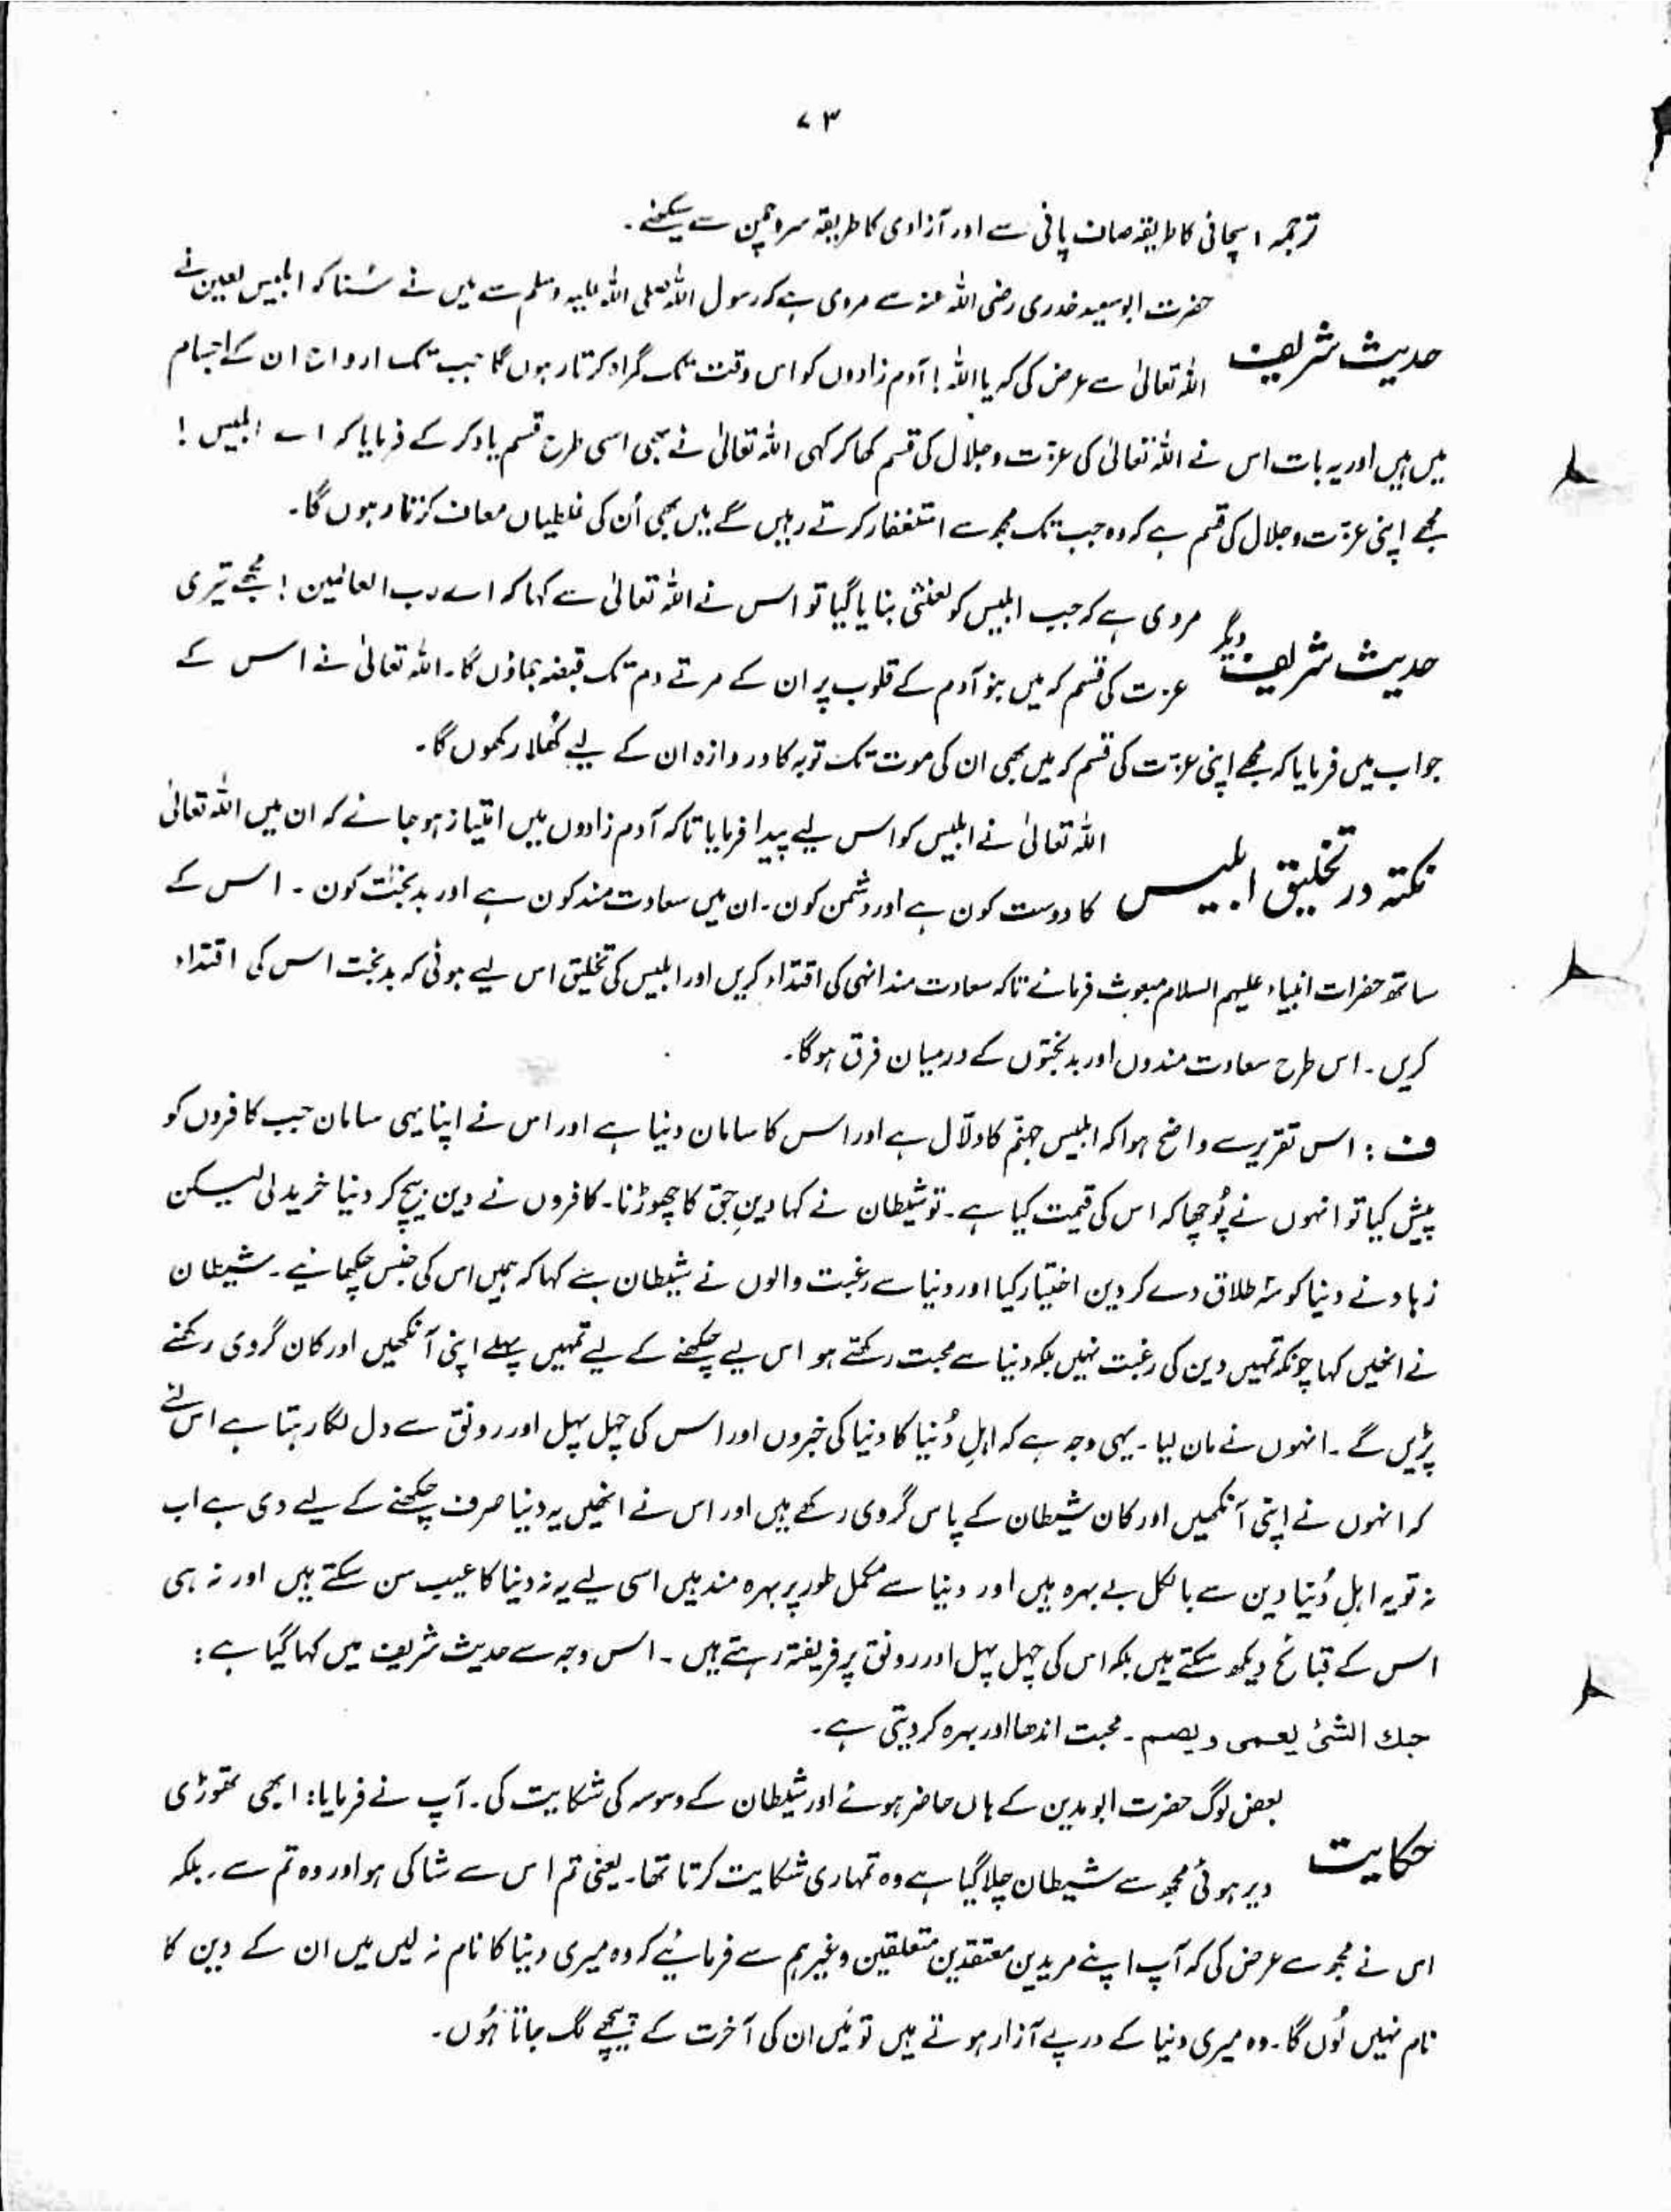 ۷۳
ترجمہ : سچائی کا طریقہ صاف پانی سے اور آزادی کا طریقہ سروِ چمن سے سیکھئے۔
حضرت ابو سعید خدری رضی اللہ عنہ سے مروی ہے کہ رسول اللہ صلی اللہ علیہ وسلم سے میں نے سُنا کہ ابلیس لعین نے
حدیث شریف
اللہ تعالیٰ سے عرض کی کہ یا اللہ ! آدم زادوں کو اس وقت تک گمراہ کرتا رہوں گا جب تک ارواح ان کے اجسام
میں ہیں اور یہ بات اس نے اللہ تعالیٰ کی عزت و جلال کی قسم کھا کر کہی اللہ تعالیٰ نے بھی اسی طرح قسم یاد کر کے فرمایا کہ اے ابلیس !
مجھے اپنی عزّت و جلال کی قسم ہے کہ وہ جب تک مجھ سے استغفار کرتے رہیں گے میں بھی اُن کی غلطیاں معاف کرتا رہوں گا۔
مروی ہے کہ جب ابلیس کو لعنتی بنایا گیا تو اس نے اللہ تعالیٰ سے کہا کہ اے رب العالمین ! مجھے تیری
حدیث شریف دیگر
عزت کی قسم کہ میں بنو آدم کے قلوب پر ان کے مرتے دم تک قبضہ جماؤں گا۔ اللہ تعالیٰ نے اس کے
جواب میں فرمایا کہ مجھے اپنی عزّت کی قسم کہ میں بھی ان کی موت تک توبہ کا دروازہ ان کے لیے کُھلا رکھوں گا۔
اللہ تعالیٰ نے ابلیس کو اس لیے پیدا فرمایا تاکہ آدم زادوں میں امتیاز ہو جائے کہ ان میں اللہ تعالیٰ
نکتہ در تخلیق ابلیس
کا دوست کون ہے اور دشمن کون۔ ان میں سعادت مند کون ہے اور بدبخت کون۔ اس کے
ساتھ حضرات انبیاء علیہم السلام مبعوث فرمائے تاکہ سعادت مند انہی کی اقتداء کریں اور ابلیس کی تخلیق اس لیے ہوئی کہ بدبخت اس کی اقتداء
کریں۔ اس طرح سعادت مندوں اور بدبختوں کے درمیان فرق ہوگا۔
ف : اس تقریر سے واضح ہوا کہ ابلیس جہنّم کا دلّال ہے اور اس کا سامان دنیا ہے اور اس نے اپنا یہی سامان جب کافروں کو
پیش کیا تو انہوں نے پُوچھا کہ اس کی قیمت کیا ہے۔ تو شیطان نے کہا دینِ حق کا چھوڑنا۔ کافروں نے دین بیچ کر دنیا خرید لی لیکن
زہاد نے دنیا کو سہ طلاق دے کر دین اختیار کیا اور دنیا سے رغبت والوں نے شیطان سے کہا کہ ہمیں اس کی جنس چکھائیے۔ شیطان
نے انھیں کہا چونکہ تمہیں دین کی رغبت نہیں بلکہ دنیا سے محبت رکھتے ہو اس لیے چکھنے کے لیے تمہیں پہلے اپنی آنکھیں اور کان گروی رکھنے
پڑیں گے۔ انہوں نے مان لیا۔ یہی وجہ ہے کہ اہلِ دُنیا کا دنیا کی خبروں اور اس کی چہل پہل اور رونق سے دل لگا رہتا ہے اس لئے
کہ انہوں نے اپنی آنکھیں اور کان شیطان کے پاس گروی رکھے ہیں اور اس نے انھیں یہ دنیا صرف چکھنے کے لیے دی ہے اب
نہ تو یہ اہلِ دُنیا دین سے بالکل بے بہرہ ہیں اور دنیا سے مکمل طور پر بہرہ مند ہیں اسی لیے یہ نہ دنیا کا عیب سن سکتے ہیں اور نہ ہی
اس کے قبائح دیکھ سکتے ہیں بلکہ اس کی چہل پہل اور رونق پر فریفتہ رہتے ہیں۔ اس وجہ سے حدیث شریف میں کہا گیا ہے :
حبك الشئ یعمی و یصم۔ محبت اندھا اور بہرہ کر دیتی ہے۔
بعض لوگ حضرت ابو مدین کے ہاں حاضر ہوئے اور شیطان کے وسوسہ کی شکایت کی۔ آپ نے فرمایا: ابھی تھوڑی
حکایت
دیر ہوئی مجھ سے شیطان چلا گیا ہے وہ تمہاری شکایت کرتا تھا۔ یعنی تم اس سے شاکی ہو اور وہ تم سے۔ بلکہ
اس نے مجھ سے عرض کی کہ آپ اپنے مریدین معتقدین متعلقین وغیرہم سے فرمائیے کہ وہ میری دنیا کا نام نہ لیں میں ان کے دین کا
نام نہیں لُوں گا۔ وہ میری دنیا کے درپے آزار ہوتے ہیں تو میں ان کی آخرت کے پیچھے لگ جاتا ہُوں۔